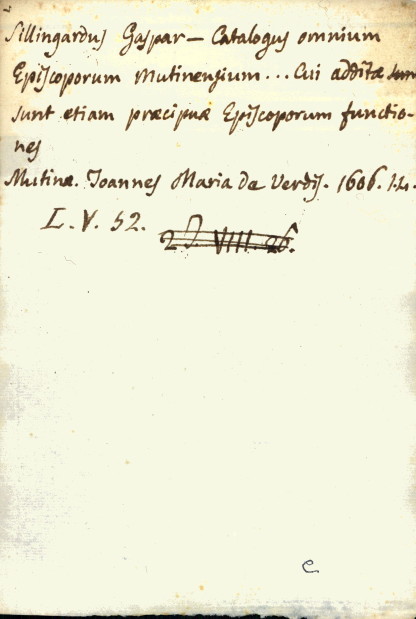 Sillingardus Gaspar — Catalogus omnium
Episcoporum Mutinensium... Cui additæ sun
sunt etiam præcipuæ Episcoporum functio-
nes
Mutinæ. Joannes Maria de Verdis. 1606. in 4.
L. V. 52.
2 D. VIII. 26.
e